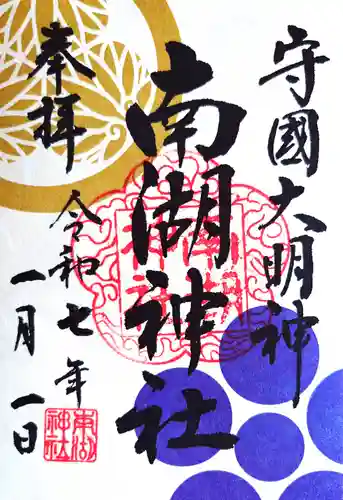 守國大明神
南湖神社
奉拝
令和七年
一月一日
南湖
神社